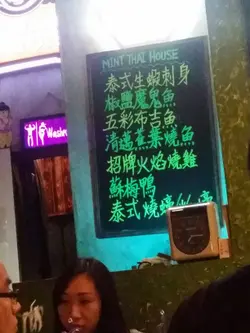 MINT THAI HOUSE
泰式生蝦刺身
椒鹽魔鬼魚
五彩布吉魚
清邁蕉葉燒魚
招牌火焰燒雞
蘇梅鴨
泰式燒蠔
Washroom